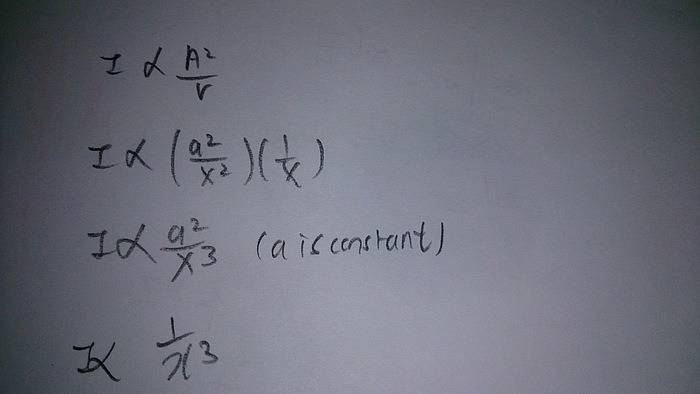 I ∝ A²/r
I ∝ (a²/x²)(1/x)
I ∝ a²/x³ (a is constant)
I ∝ 1/x³